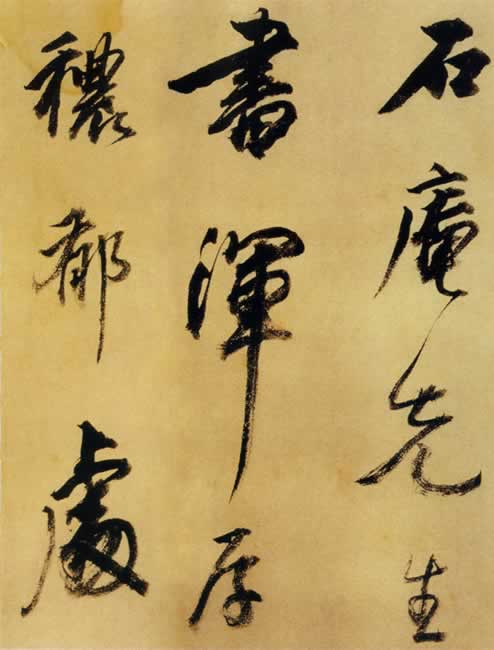 石庵先生
書渾厚
穠郁處